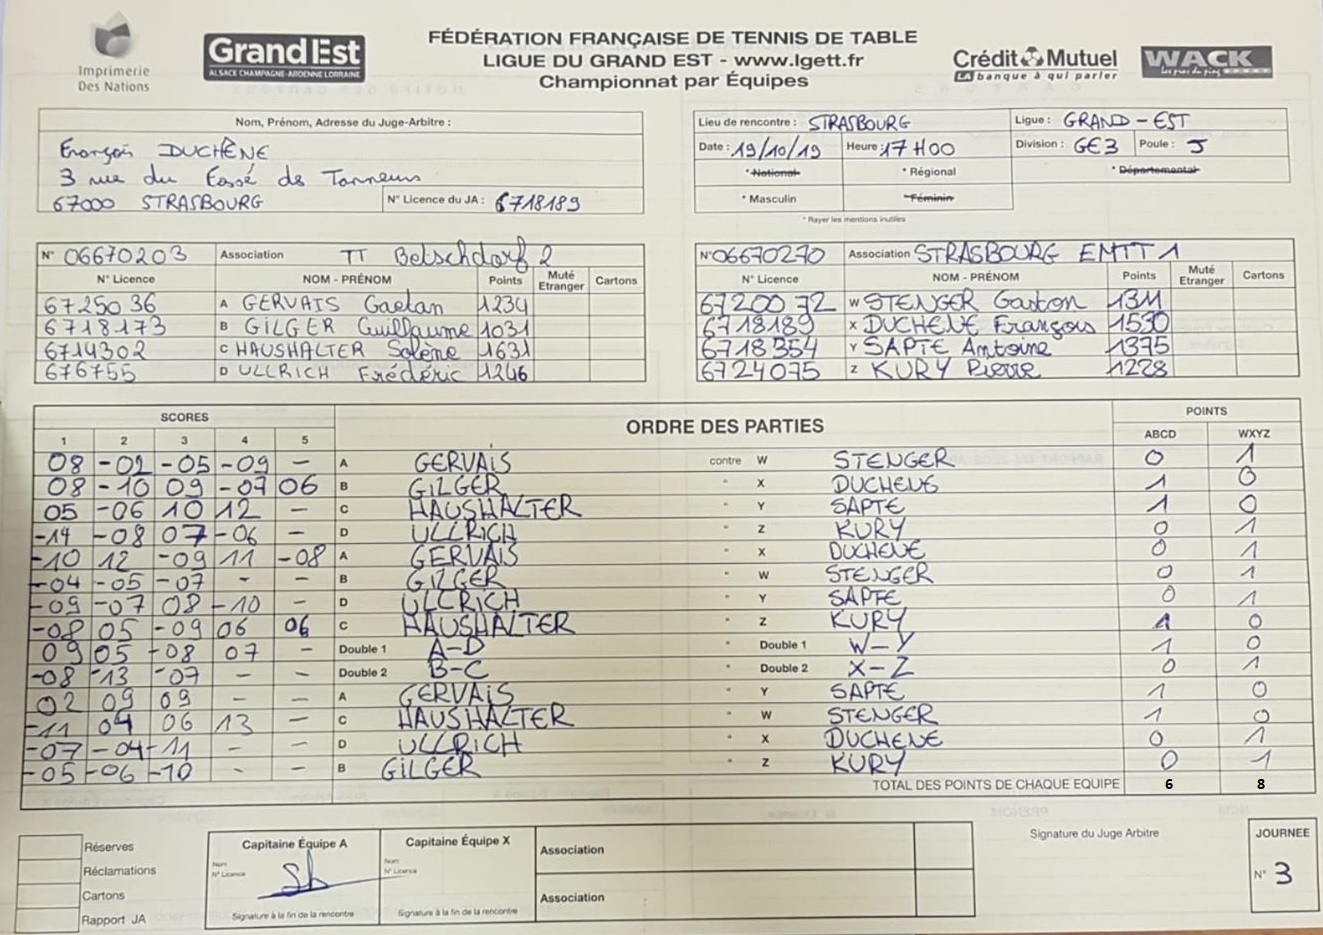 Imprimerie
Des Nations
Grand Est
ALSACE CHAMPAGNE-ARDENNE LORRAINE
FÉDÉRATION FRANÇAISE DE TENNIS DE TABLE
LIGUE DU GRAND EST - www.lgett.fr
Championnat par Équipes
Crédit Mutuel
LA banque à qui parler
WACK
Nom, Prénom, Adresse du Juge-Arbitre :
François DUCHÊNE
3 rue du Fossé des Tanneurs
67000 STRASBOURG N° Licence du JA : 6718189
Lieu de rencontre : STRASBOURG Ligue : GRAND-EST
Date : 19/10/19 Heure : 17H00 Division : GE3 Poule : J
* National * Régional * Départemental
* Masculin * Féminin
* Rayer les mentions inutiles
N° 06670203 Association TT Betschdorf 2
N° Licence NOM - PRÉNOM Points Muté Etranger Cartons
6725036 A GERVAIS Gaetan 1234
6718173 B GILGER Guillaume 1031
6714302 C HAUSHALTER Solène 1631
676755 D ULLRICH Frédéric 1246
N° 06670270 Association STRASBOURG EMTT 1
N° Licence NOM - PRÉNOM Points Muté Etranger Cartons
6720072 W STENGER Gaston 1311
6718189 X DUCHENE François 1530
6718354 Y SAPTE Antoine 1375
6724075 Z KURY Pierre 1228
SCORES ORDRE DES PARTIES POINTS
1 2 3 4 5 ABCD WXYZ
08 -02 -05 -09 - A GERVAIS contre W STENGER 0 1
08 -10 09 -07 06 B GILGER " X DUCHENE 1 0
05 -06 10 12 - C HAUSHALTER " Y SAPTE 1 0
-14 -08 07 -06 - D ULLRICH " Z KURY 0 1
-10 12 -09 11 -08 A GERVAIS " X DUCHENE 0 1
-04 -05 -07 - - B GILGER " W STENGER 0 1
-09 -07 08 -10 - D ULLRICH " Y SAPTE 0 1
-08 05 -09 06 06 C HAUSHALTER " Z KURY 1 0
09 05 -08 07 - Double 1 A-D " Double 1 W-Y 1 0
-08 -13 -07 - - Double 2 B-C " Double 2 X-Z 0 1
02 09 09 - - A GERVAIS " Y SAPTE 1 0
-11 04 06 13 - C HAUSHALTER " W STENGER 1 0
-07 -04 -11 - - D ULLRICH " X DUCHENE 0 1
-05 -06 -10 - - B GILGER " Z KURY 0 1
TOTAL DES POINTS DE CHAQUE EQUIPE 6 8
Réserves
Réclamations
Cartons
Rapport JA
Capitaine Équipe A
Nom
N° Licence
Signature à la fin de la rencontre
Capitaine Équipe X
Nom
N° Licence
Signature à la fin de la rencontre
Association
Association
Signature du Juge Arbitre
JOURNEE
N° 3